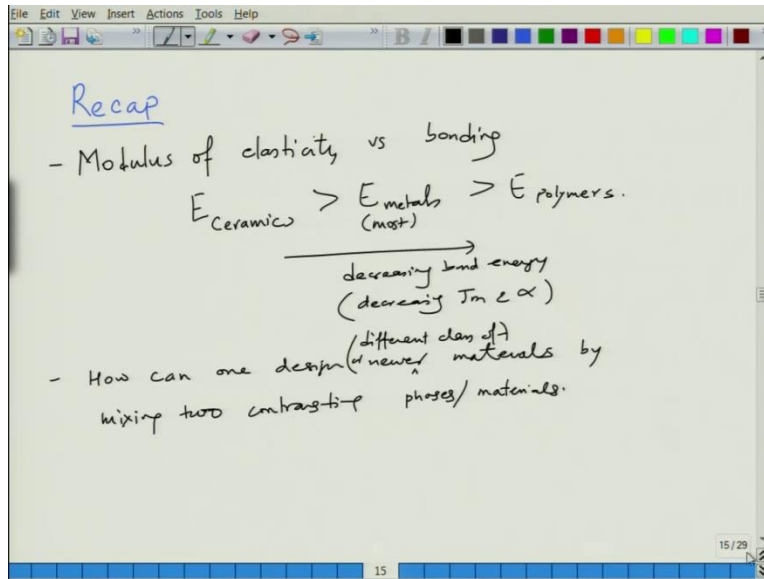 File Edit View Insert Actions Tools Help
Recap
- Modulus of elasticity vs bonding
E ceramics > E metals > E polymers.
(most)
decreasing bond energy
(decreasing Tm & α)
(different class of)
- How can one design newer materials by
mixing two contrasting phases/materials.
15/29
15